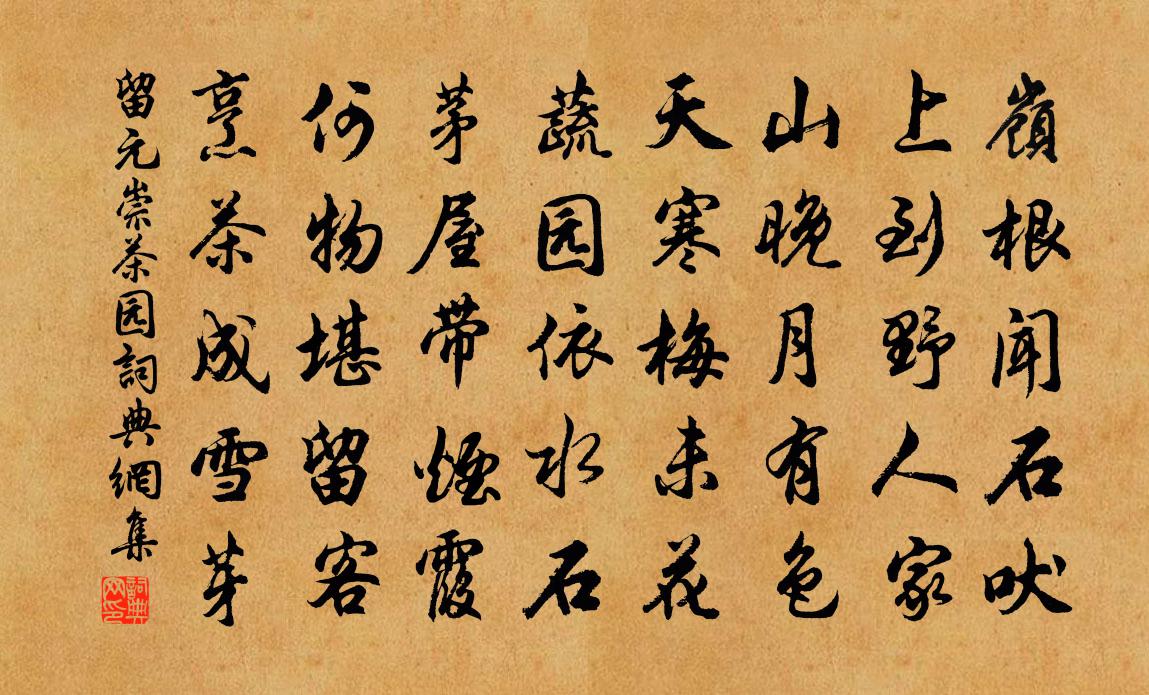 嶺根闻石吠
上到野人家
山晚月有色
天寒梅未花
蔬园依水石
茅屋带煙霞
何物堪留客
烹茶成雪芽
留元崇茶园詞典網集
詞典网印